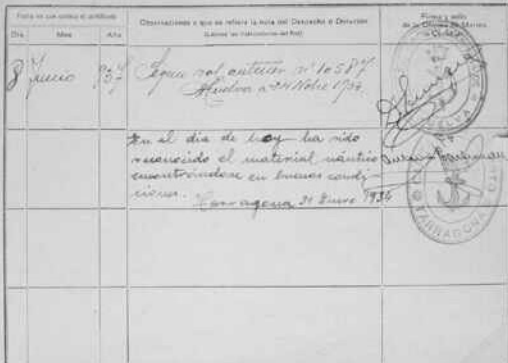 Fecha en que vence el certificado
Observaciones a que se refiere la nota del Despacho o Dotación
Firma y sello
de la Oficina de Marina
o Consular
Día Mes Año
8 Junio 1937
Según rol anterior nº 10587
Huelva a 24 Nobre 1934
En el dia de hoy ha sido
reconocido el material náutico
encontrándose en buenas condi
ciones.
Tarragona 31 Enero 1934
TARRAGONA